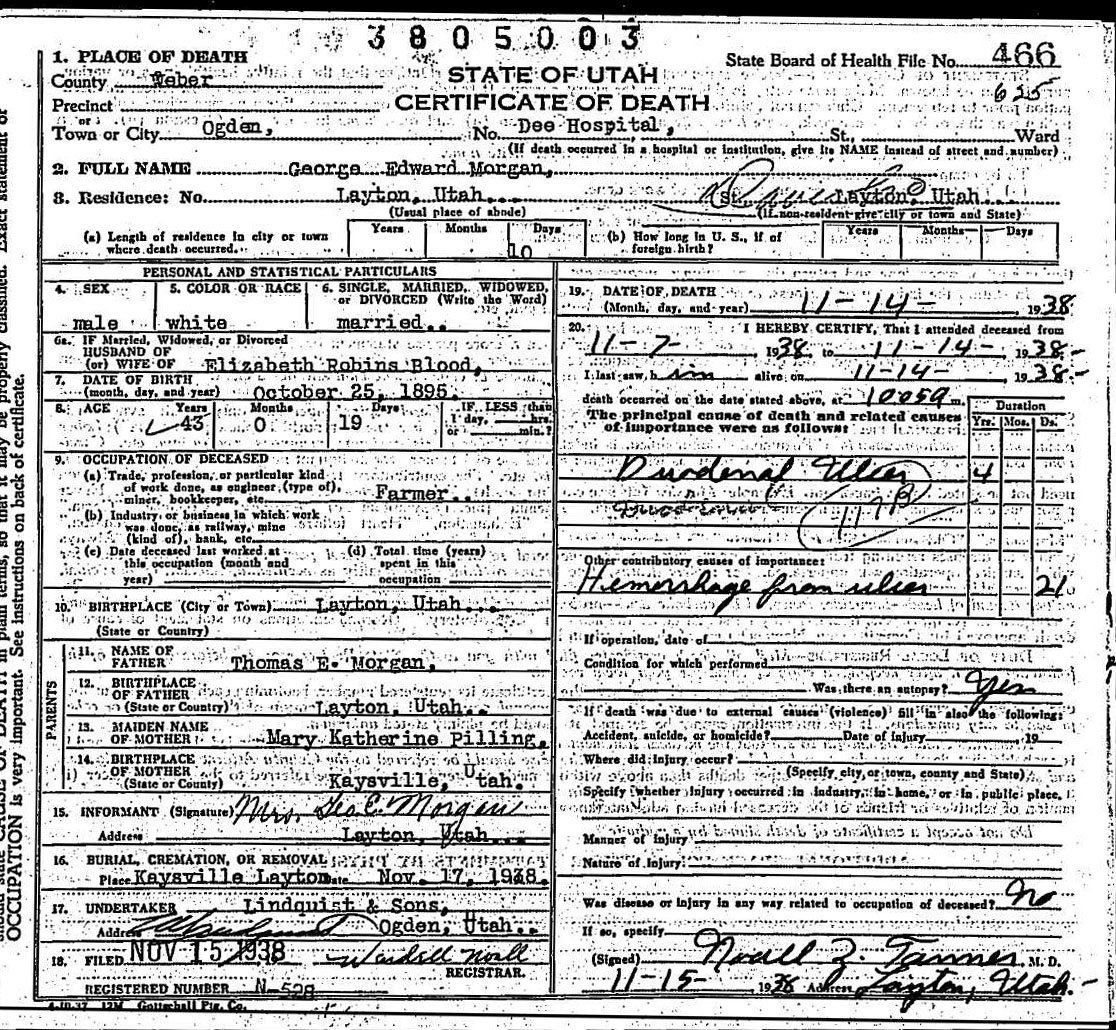 3805003
State Board of Health File No. 466
625
STATE OF UTAH
CERTIFICATE OF DEATH
1. PLACE OF DEATH
County Weber
Precinct
or
Town or City Ogden, No. Dee Hospital, St., Ward
(If death occurred in a hospital or institution, give its NAME instead of street and number)
2. FULL NAME George Edward Morgan,
3. Residence: No. Layton, Utah St. Layton, Utah
(Usual place of abode) (If non-resident give city or town and State)
(a) Length of residence in city or town where death occurred. Years Months Days 10
(b) How long in U. S., if of foreign birth? Years Months Days
PERSONAL AND STATISTICAL PARTICULARS
4. SEX male
5. COLOR OR RACE white
6. SINGLE, MARRIED, WIDOWED, or DIVORCED (Write the Word) married
6a. IF Married, Widowed, or Divorced
HUSBAND OF
(or) WIFE OF Elizabeth Robins Blood,
7. DATE OF BIRTH
(month, day, and year) October 25, 1895.
8. AGE Years 43 Months 0 Days 19 IF LESS than 1 day, hrs. or min.?
9. OCCUPATION OF DECEASED
(a) Trade, profession, or particular kind of work done, as engineer (type of), miner, bookkeeper, etc. Farmer
(b) Industry or business in which work was done, as railway, mine (kind of), bank, etc.
(c) Date deceased last worked at this occupation (month and year)
(d) Total time (years) spent in this occupation
10. BIRTHPLACE (City or Town) Layton, Utah
(State or Country)
PARENTS
11. NAME OF FATHER Thomas E. Morgan.
12. BIRTHPLACE OF FATHER
(State or Country) Layton, Utah
13. MAIDEN NAME OF MOTHER Mary Katherine Pilling,
14. BIRTHPLACE OF MOTHER
(State or Country) Kaysville, Utah.
15. INFORMANT (Signature) Mrs. Geo. E. Morgan
Address Layton, Utah
16. BURIAL, CREMATION, OR REMOVAL
Place Kaysville Layton Date Nov. 17, 1938.
17. UNDERTAKER Lindquist & Sons,
Address Ogden, Utah
18. FILED NOV 15 1938 Wardell Noall
REGISTRAR.
REGISTERED NUMBER N-528
4-10-37 12M Gottschall Ptg. Co.
19. DATE OF DEATH
(Month, day, and year) 11-14- 1938
20. I HEREBY CERTIFY, That I attended deceased from
11-7- 1938 to 11-14- 1938-
I last saw him alive on 11-14- 1938-
death occurred on the date stated above, at m.
The principal cause of death and related causes of importance were as follows:
Duration
Yrs. Mos. Ds.
Duodenal Ulcer 4
117B
Other contributory causes of importance:
Hemorrhage from ulcer 21
If operation, date of
Condition for which performed
Was there an autopsy? Yes
If death was due to external causes (violence) fill in also the following:
Accident, suicide, or homicide? Date of injury, 19
Where did injury occur?
(Specify city, or town, county and State)
Specify whether injury occurred in industry, in home, or in public place.
Manner of injury
Nature of injury
Was disease or injury in any way related to occupation of deceased? No
If so, specify
(Signed) Noall Z. Tanner M. D.
11-15 1938 Address Layton, Utah.-
OCCUPATION is very important. See instructions on back of certificate.